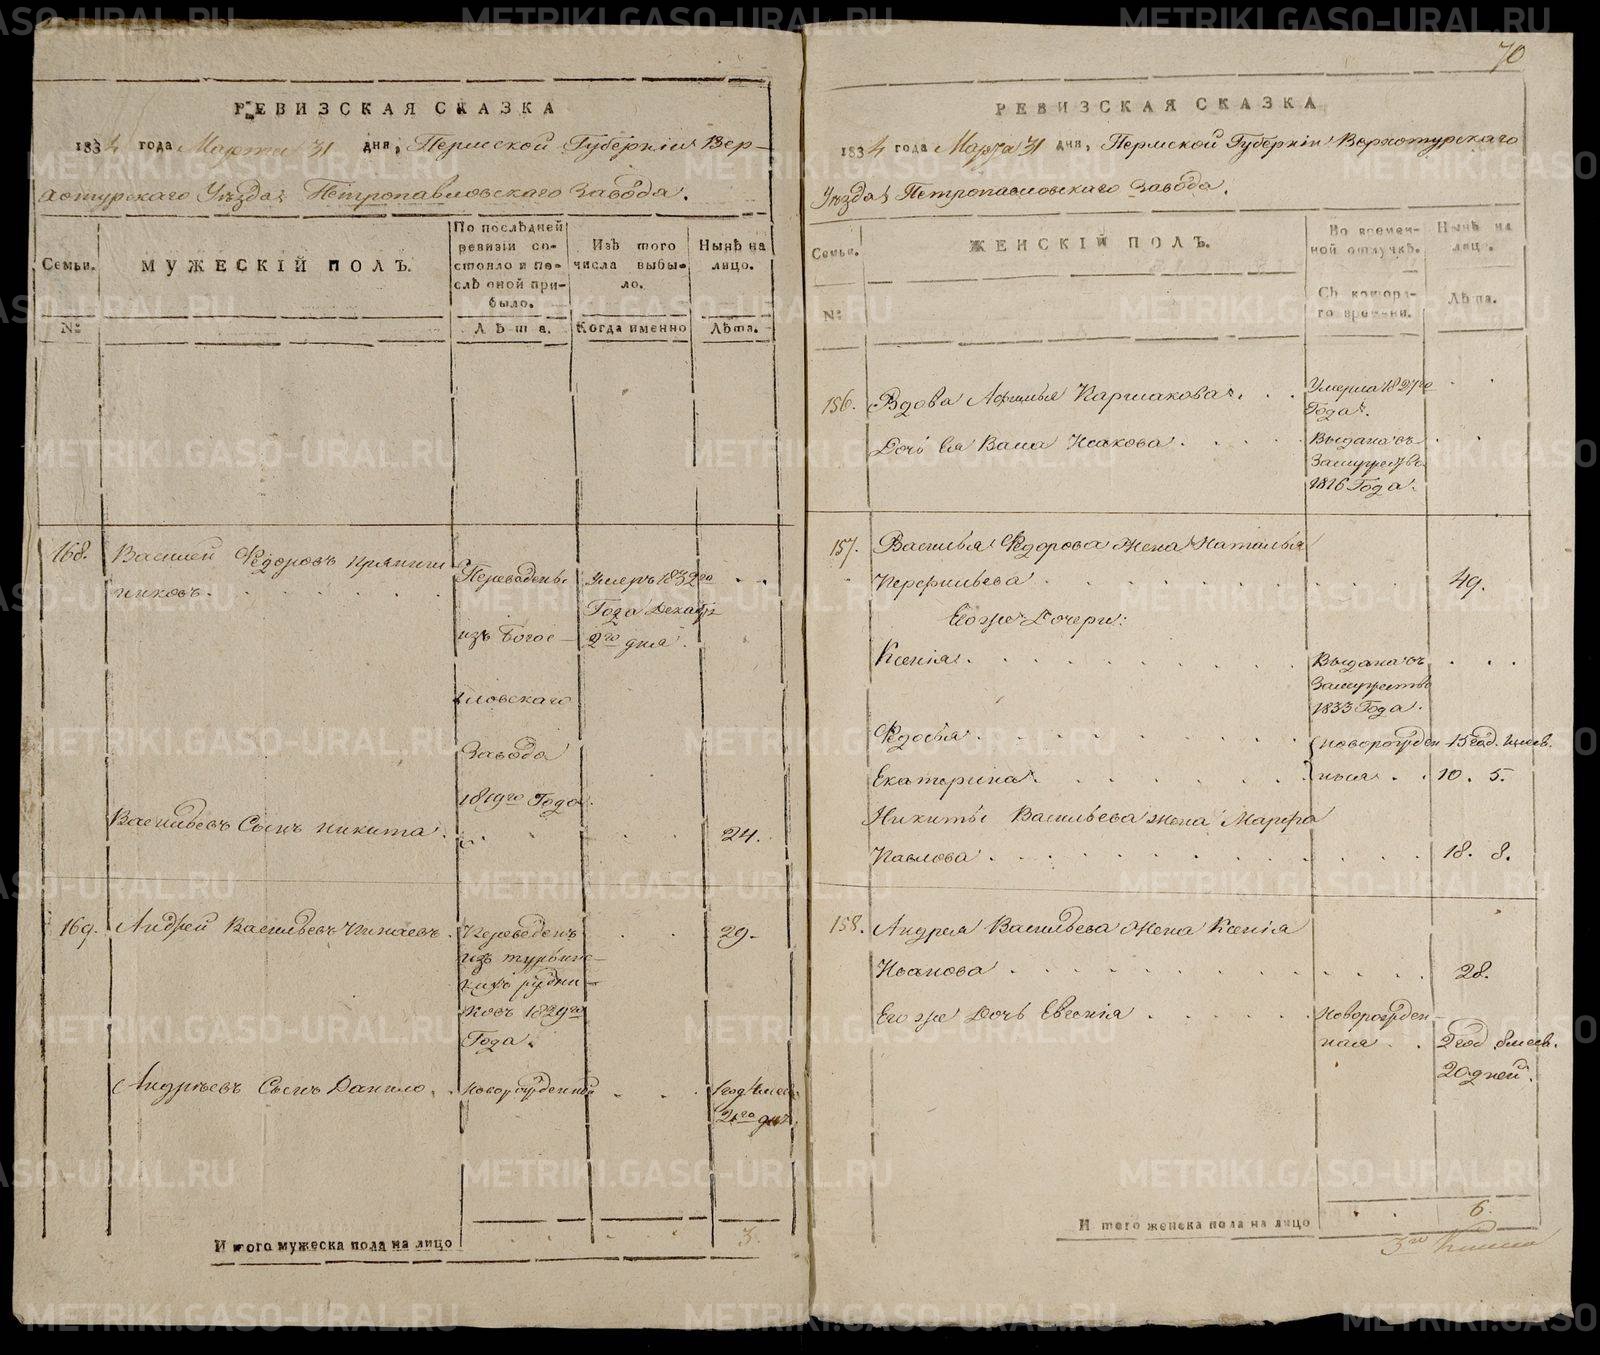 РЕВИЗСКАЯ СКАЗКА
1834 года Марта 31 дня, Пермской Губернiи Вер-
хотурскаго Уѣзда Петропавловскаго Завода.
Семьи.
МУЖЕСКIЙ ПОЛЪ.
По послѣдней ревизiи со-стояло и по-слѣ оной при-было.
Изъ того числа выбы-ло.
Нынѣ на лицо.
№
Лѣта.
Когда именно
Лѣта.
168. Василей Федоровъ
никовъ.
Переведенъ
изъ Богос-
ловскаго
Завода
1819го Года.
Умеръ 1832го
Года Декабр
2го дня.
Васильевъ Сынъ Никита. 24.
169. Андрей Васильевъ
Переведенъ
изъ Турьинс-
кихъ рудни-
ковъ 1829го
Года.
29.
Андрѣевъ Сынъ Данило. Новорожденный
1 год
дн.
Итого мужеска пола на лицо 3.
70
РЕВИЗСКАЯ СКАЗКА
1834 года Марта 31 дня, Пермской Губернiи Верхотурскаго
Уѣзда Петропавловскаго Завода.
Семьи.
ЖЕНСКIЙ ПОЛЪ.
Во времен-ной отлучкѣ.
Нынѣ на лицо.
№
Съ котора-го времени.
Лѣта.
156. Вдова Афимья Каршакова.
Умерла 1827го
Года.
Дочь Ея Васа Исакова.
Выдана въ
Замужество
1816 Года.
157. Василья Федорова Жена Наталья
Перфильева 49.
Его же Дочери:
Ксенiя.
Выдана въ
Замужество
1833 Года.
Федосья. новорожден- 15 год. мѣсев.
Екатерина. ныя. 10. 5.
Никиты Васильева жена Марфа
Павлова. 18. 8.
158. Андрея Васильева Жена Ксенiя
Иванова 28.
Его же Дочь Евгенiя
Новорожден-
ная
2 год мѣсев.
20 дней.
Итого женска пола на лицо 6.
METRIKI.GASO-URAL.RU